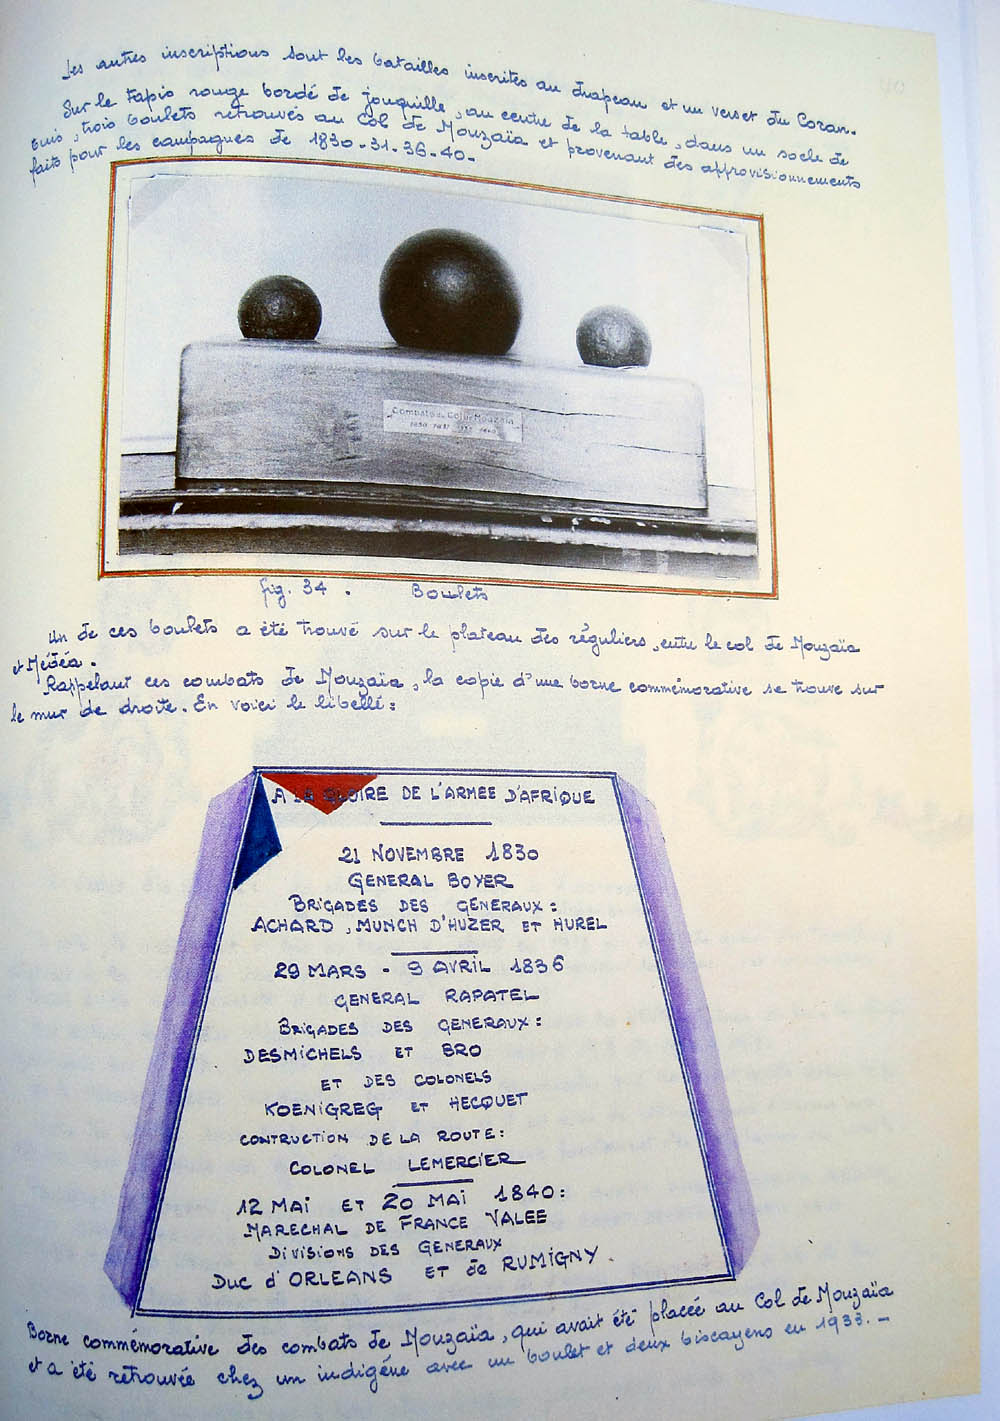 Les autres inscriptions sont les batailles inscrites au drapeau et un verset du Coran.
Sur le tapis rouge bordé de jonquille, au centre de la table, dans un socle de
buis, trois boulets retrouvés au Col de Mouzaïa et provenant des approvisionnements
faits pour les campagnes de 1830-31-36-40-
Combats du Col de Mouzaïa
1830 1831 1836 1840
fig. 34. Boulets
Un de ces boulets a été trouvé sur le plateau des réguliers, entre le col de Mouzaïa
et Médéa.
Rappelant ces combats de Mouzaïa, la copie d'une borne commémorative se trouve sur
le mur de droite. En voici le libellé:
A LA GLOIRE DE L'ARMEE D'AFRIQUE
21 NOVEMBRE 1830
GENERAL BOYER
BRIGADES DES GENERAUX:
ACHARD, MUNCH D'HUZER ET HUREL
29 MARS - 9 AVRIL 1836
GENERAL RAPATEL
BRIGADES DES GENERAUX:
DESMICHELS ET BRO
ET DES COLONELS
KOENIGREG ET HECQUET
CONTRUCTION DE LA ROUTE:
COLONEL LEMERCIER
12 MAI ET 20 MAI 1840:
MARECHAL DE FRANCE VALEE
DIVISIONS DES GENERAUX
DUC d'ORLEANS ET de RUMIGNY.
Borne commémorative des combats de Mouzaïa, qui avait été placée au Col de Mouzaïa
et a été retrouvée chez un indigéne avec un boulet et deux biscayens en 1933.-